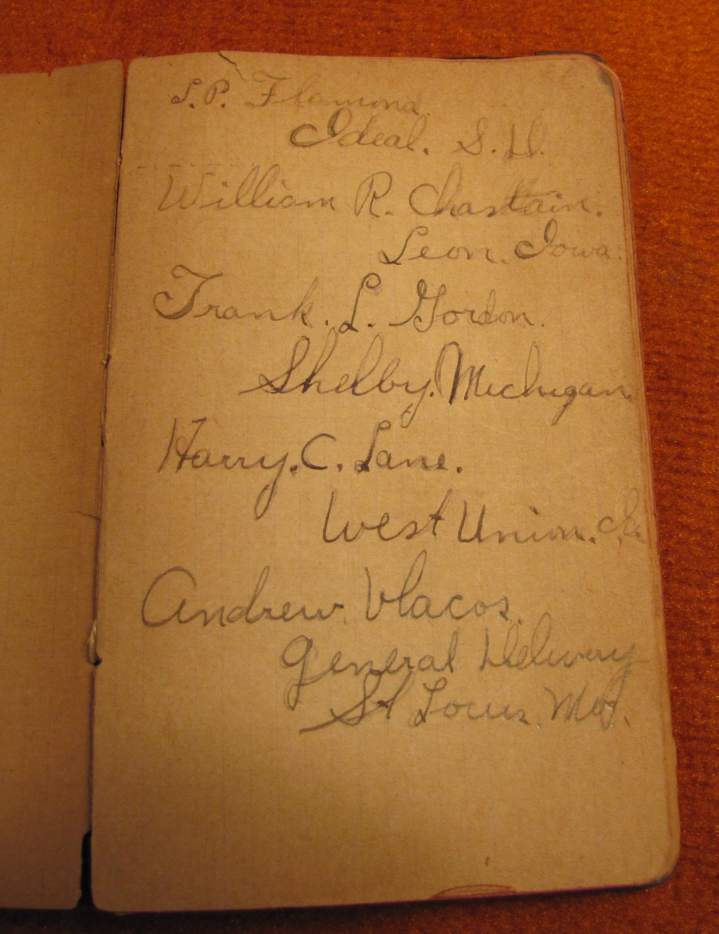 S.P. Flamond
Ideal. S.D.
William R. Chastain.
Leon. Iowa.
Frank. L. Gordon.
Shelby. Michigan.
Harry. C. Lane.
West Union.
Andrew. Vlacos.
General Delivery
St Louis. Mo.